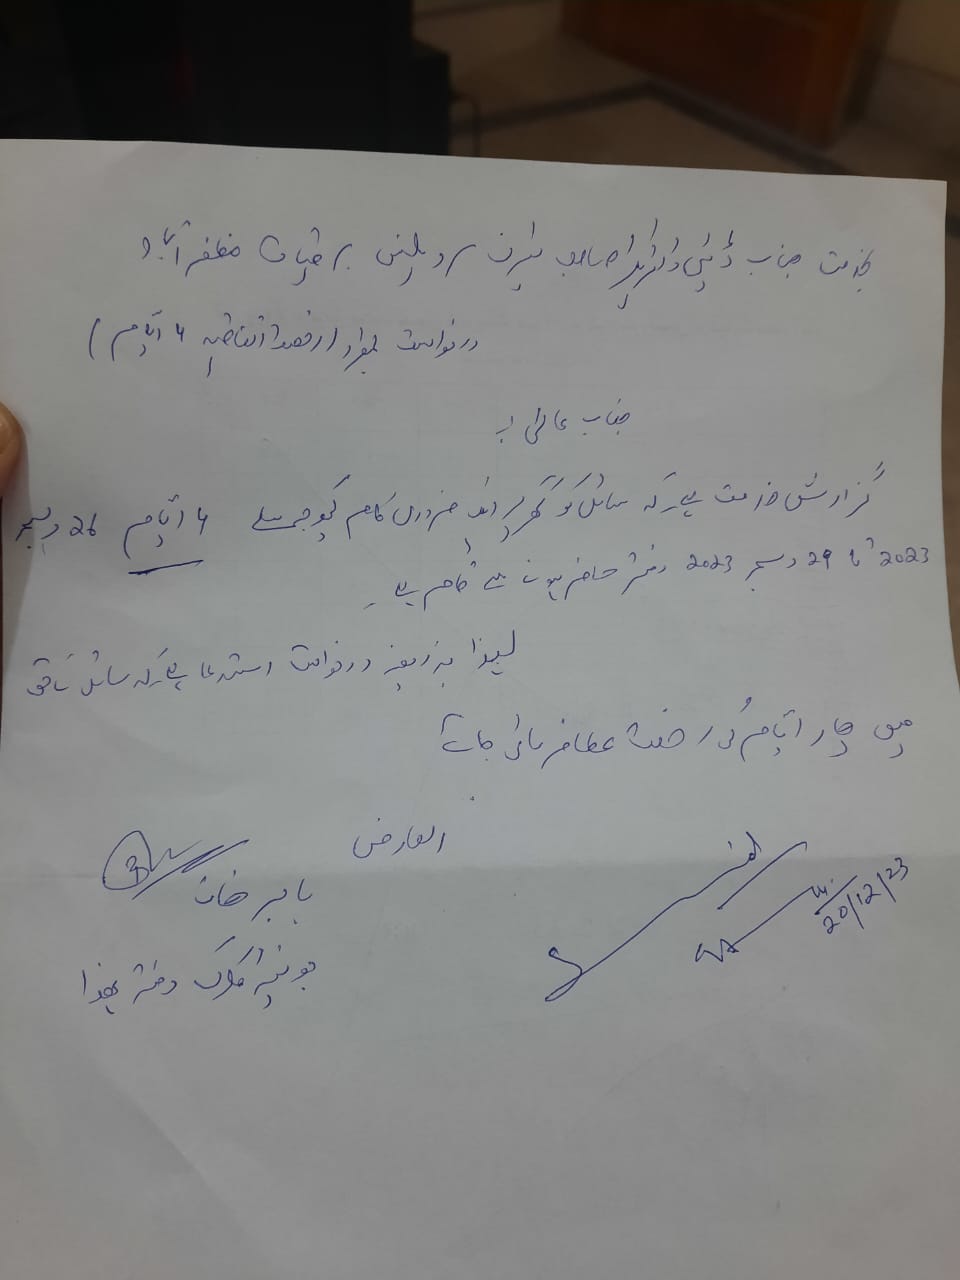 بخدمت جناب ڈپٹی ڈائریکٹر صاحب ٹیرف سرویلنس برقیات مظفرآباد
درخواست بمراد (رخصت اتفاقیہ 4 ایام)
جناب عالی!
گزارش خدمت ہے کہ سائل کو گھر پر ایک ضروری کام کیوجہ سے 4 ایام 26 دسمبر
2023 تا 29 دسمبر 2023 دفتر حاضر ہونے سے قاصر ہے۔
لہذا بذریعہ درخواست استدعا ہے کہ سائل کے حق
میں چار ایام کی رخصت عطا فرمائی جائے
العارض
بابر خان
جونیئر کلرک دفتر ہذا
20/12/23